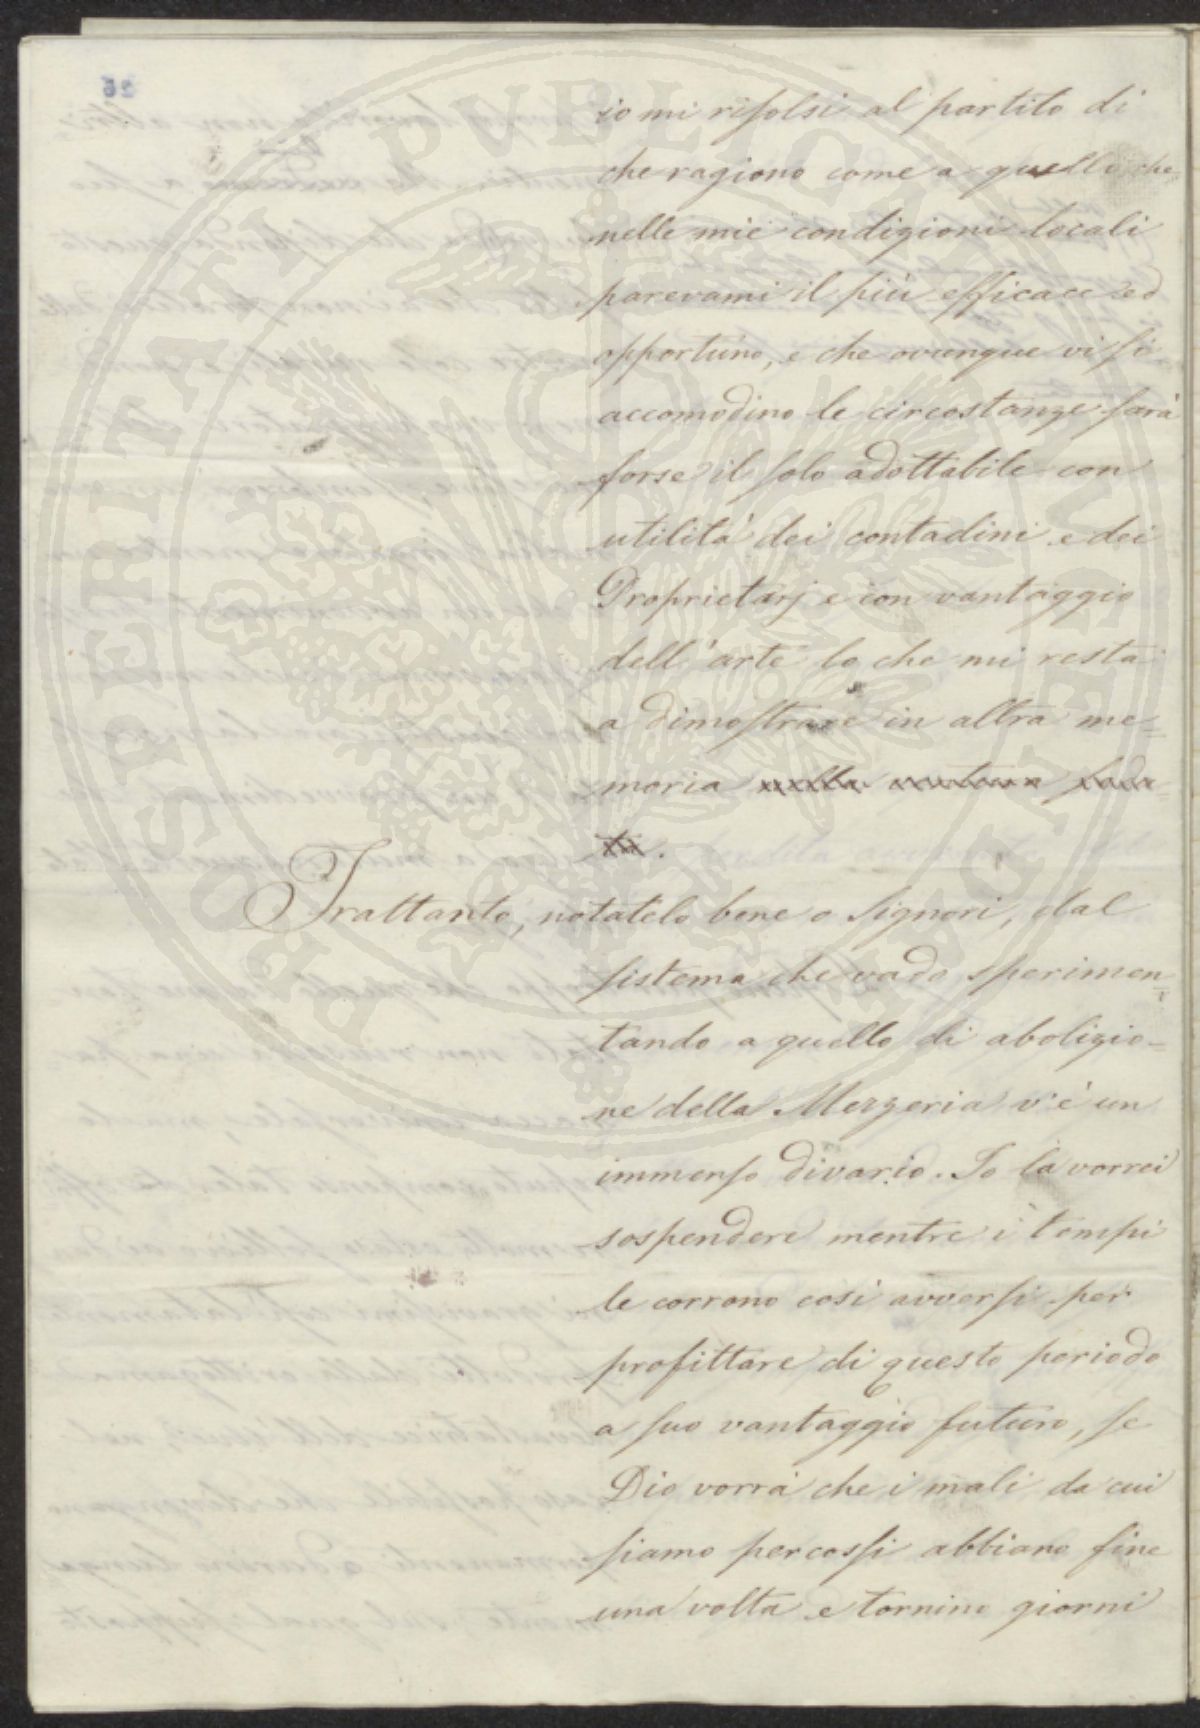 io mi risolsi al partito di
che ragiono come a quello che
nelle mie condizioni locali
parevami il più efficace ed
opportuno, e che ovunque vi si
accomodino le circostanze sarà
forse il solo adottabile con
utilità dei contadini e dei
Proprietarj e con vantaggio
dell'arte lo che mi resta
a dimostrare in altra me=
moria
Frattanto, notatelo bene o Signori, dal
sistema che vado sperimen=
tando a quello di abolizio=
ne della Mezzeria v'è un
immenso divario. Io la vorrei
sospendere mentre i tempi
le corrono così avversi per
profittare di questo periodo
a suo vantaggio futuro, se
Dio vorrà che i mali da cui
siamo percossi abbiano fine
una volta e tornino giorni
PROSPERITATI PUBLICAE AUGENDAE